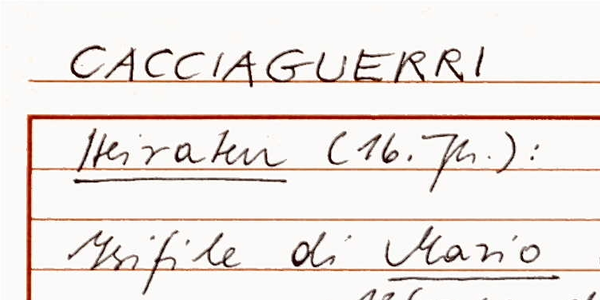 CACCIAGUERRI
Heiraten (16. Jh.):
Isifile di Mario